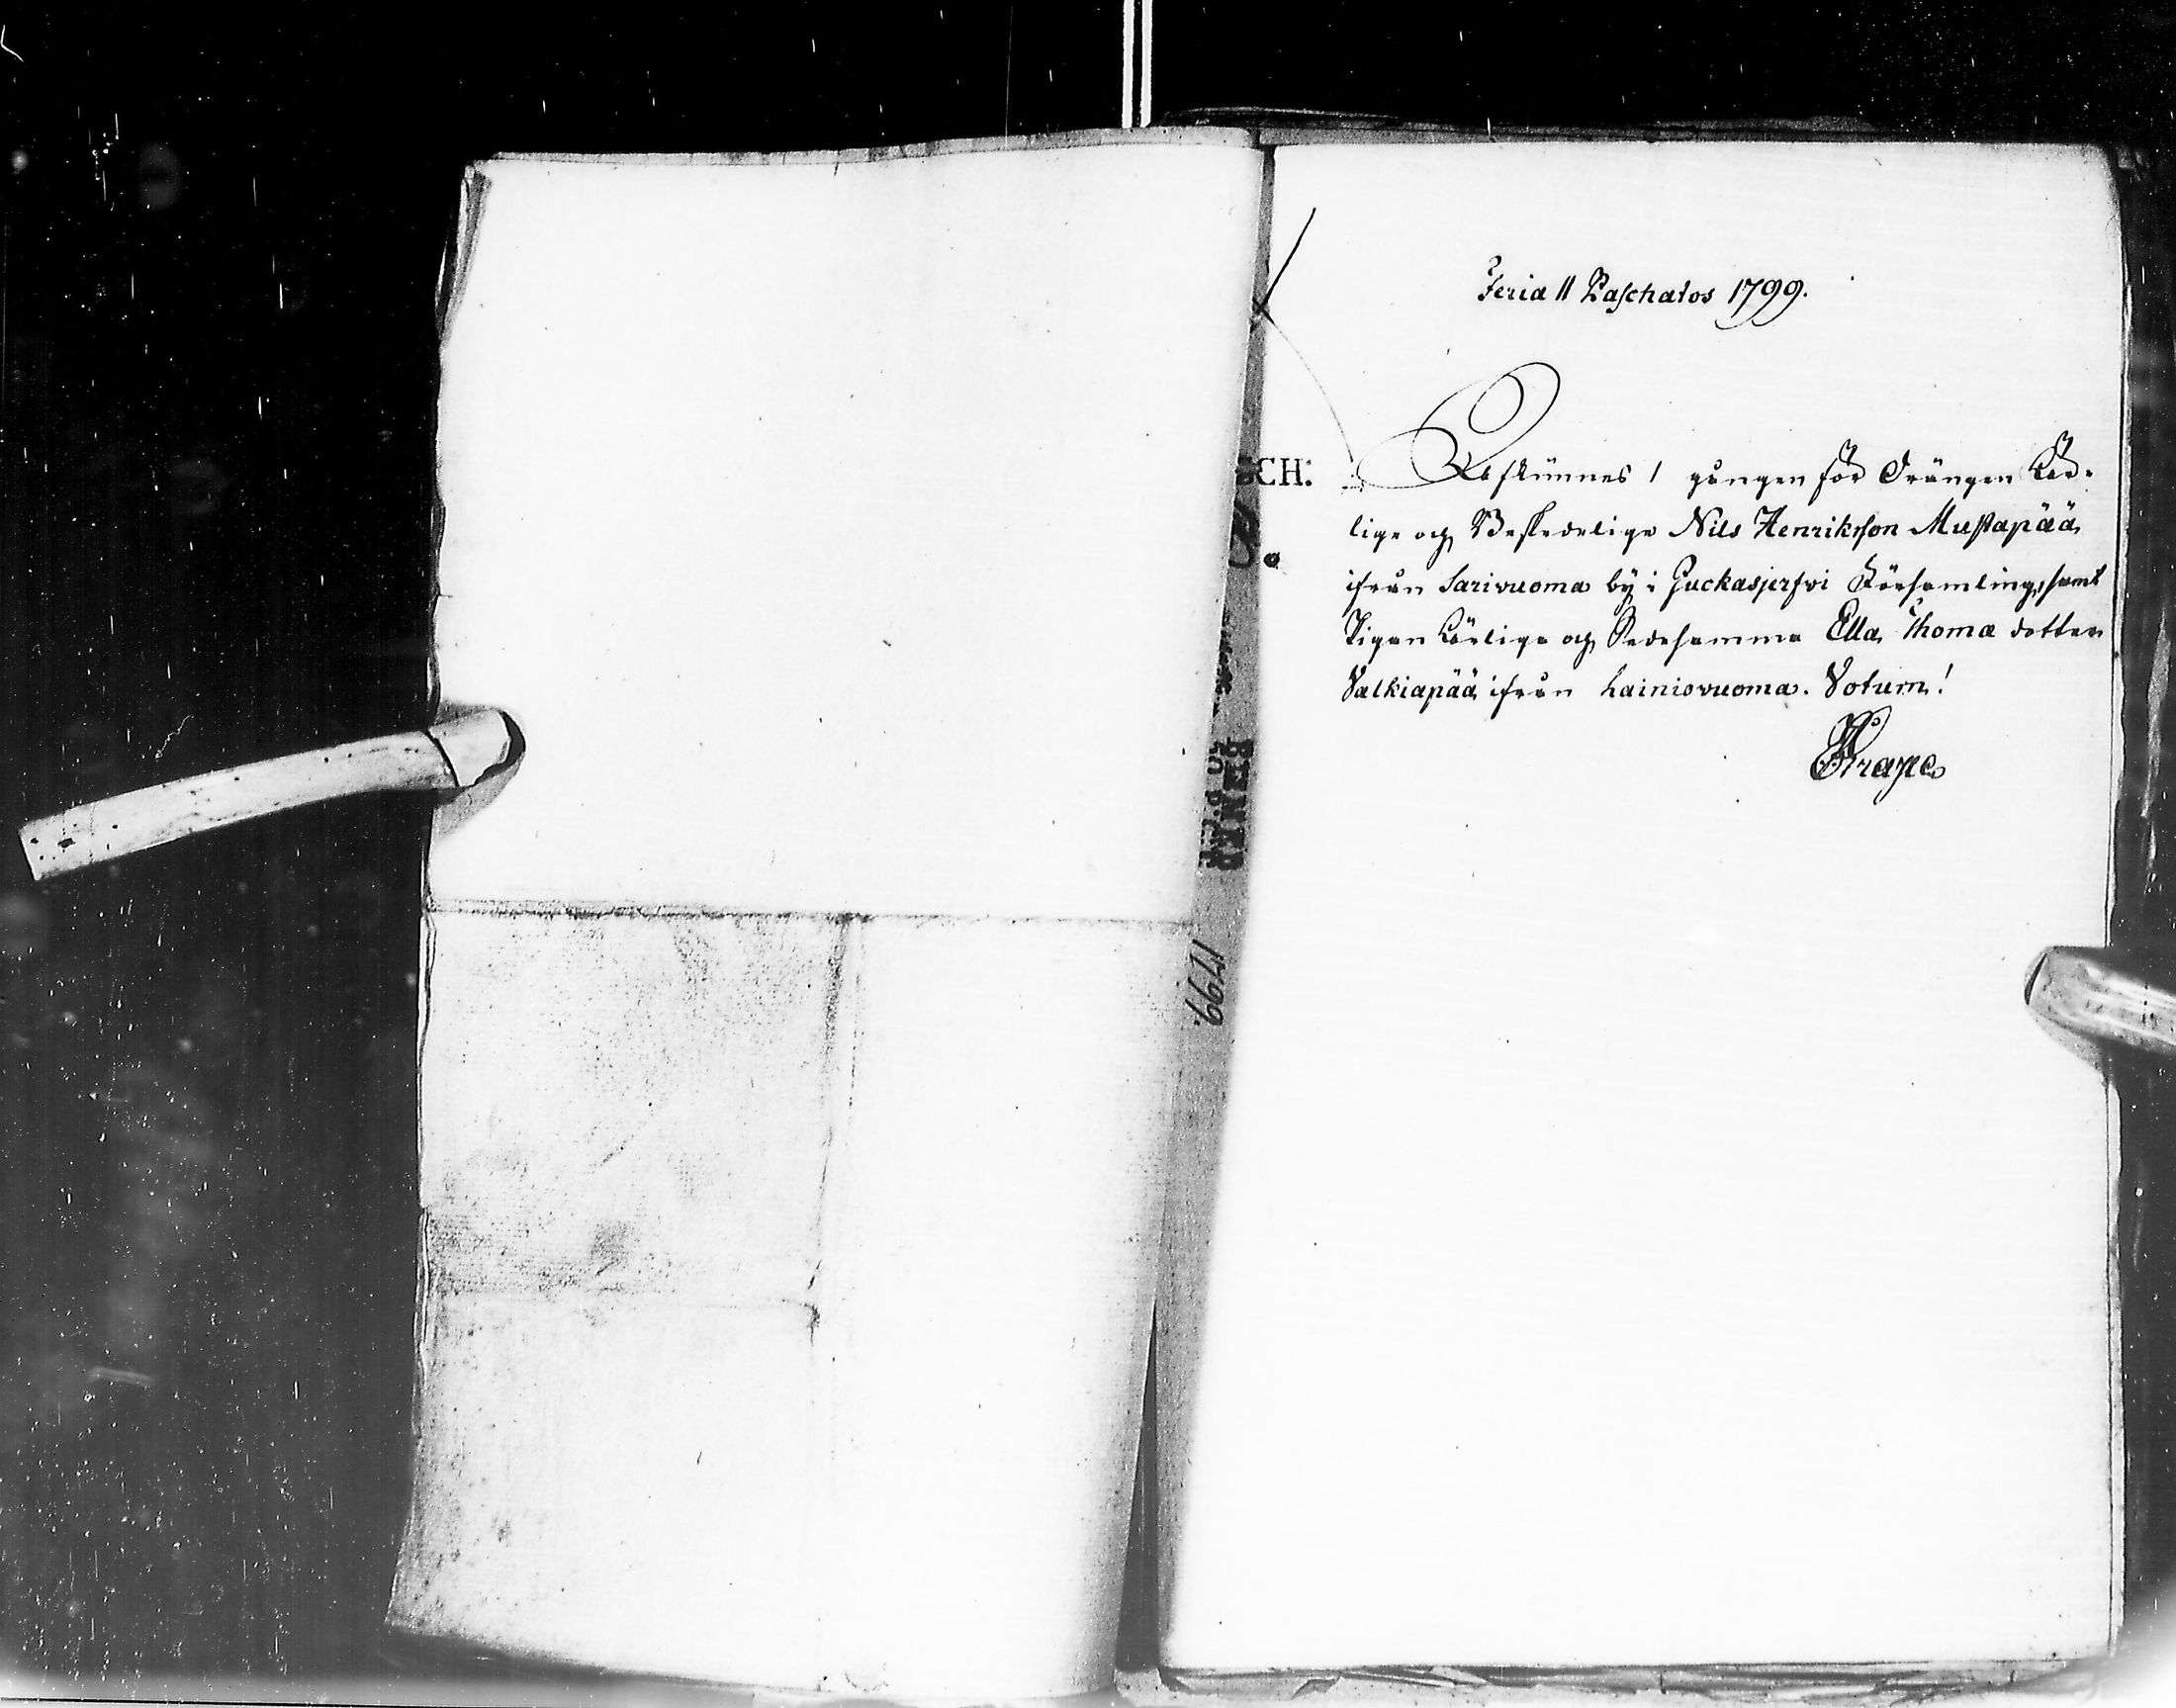 Feria II Paschatos 1799.
Afkunnes 1 gången för Drängen Ärlige och Beskedelige Nils Henriksson Mustapää
ifrån Sarivuoma by i Juckasjerfvi Församling, samt
Pigan Ärliga och Sedesamma Ella Thomæ dotter
Valkiapää ifrån Lainiovuoma. Votum!
CH.
1799.